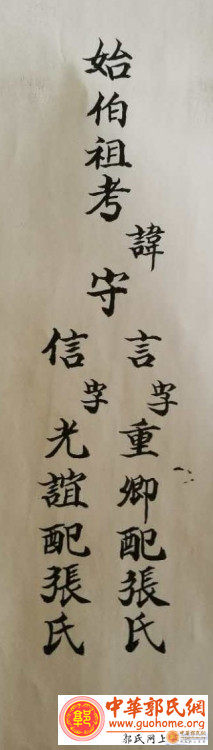 始伯祖考
諱
守
言字重卿配張氏
信字光誼配張氏
中華郭氏網
www.guohome.org
郭氏网上
中華郭氏網